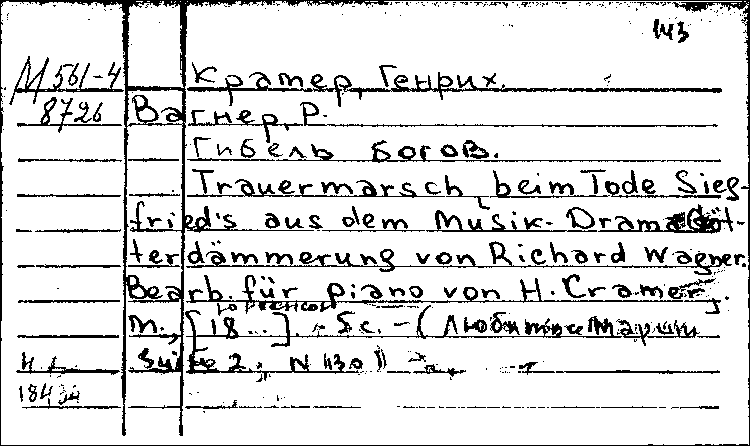 143
М 561-4 Крамер, Генрих.
8726 Вагнер, Р.
Гибель богов.
Trauermarsch beim Tode Sieg-
fried's aus dem Musik-Drama Göt-
terdämmerung von Richard Wagner.
Bearb. für piano von H. Cramer.
М., Юргенсон [18...]. 5 с. - (Любимые марши
Suite 2; N 30)
18434